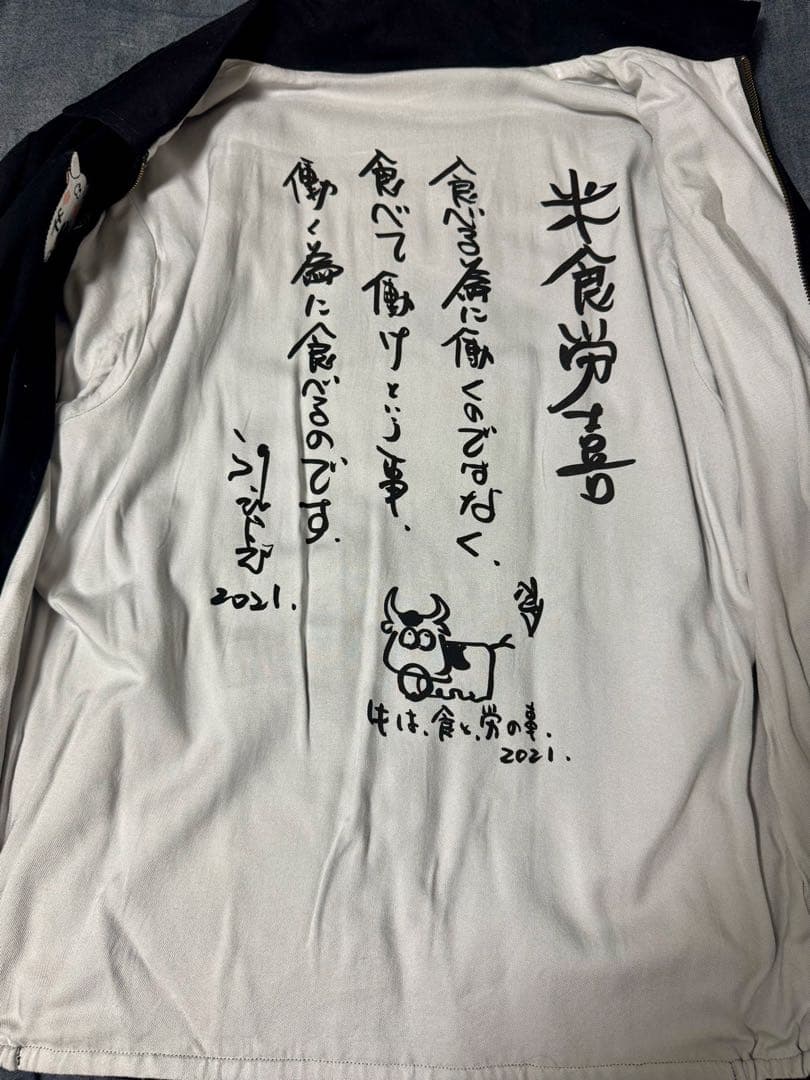 米食労喜
食べる為に働くのではなく、
食べて働けという事、
働く為に食べるのです.
2021.
牛は、食と、労の事.
2021.